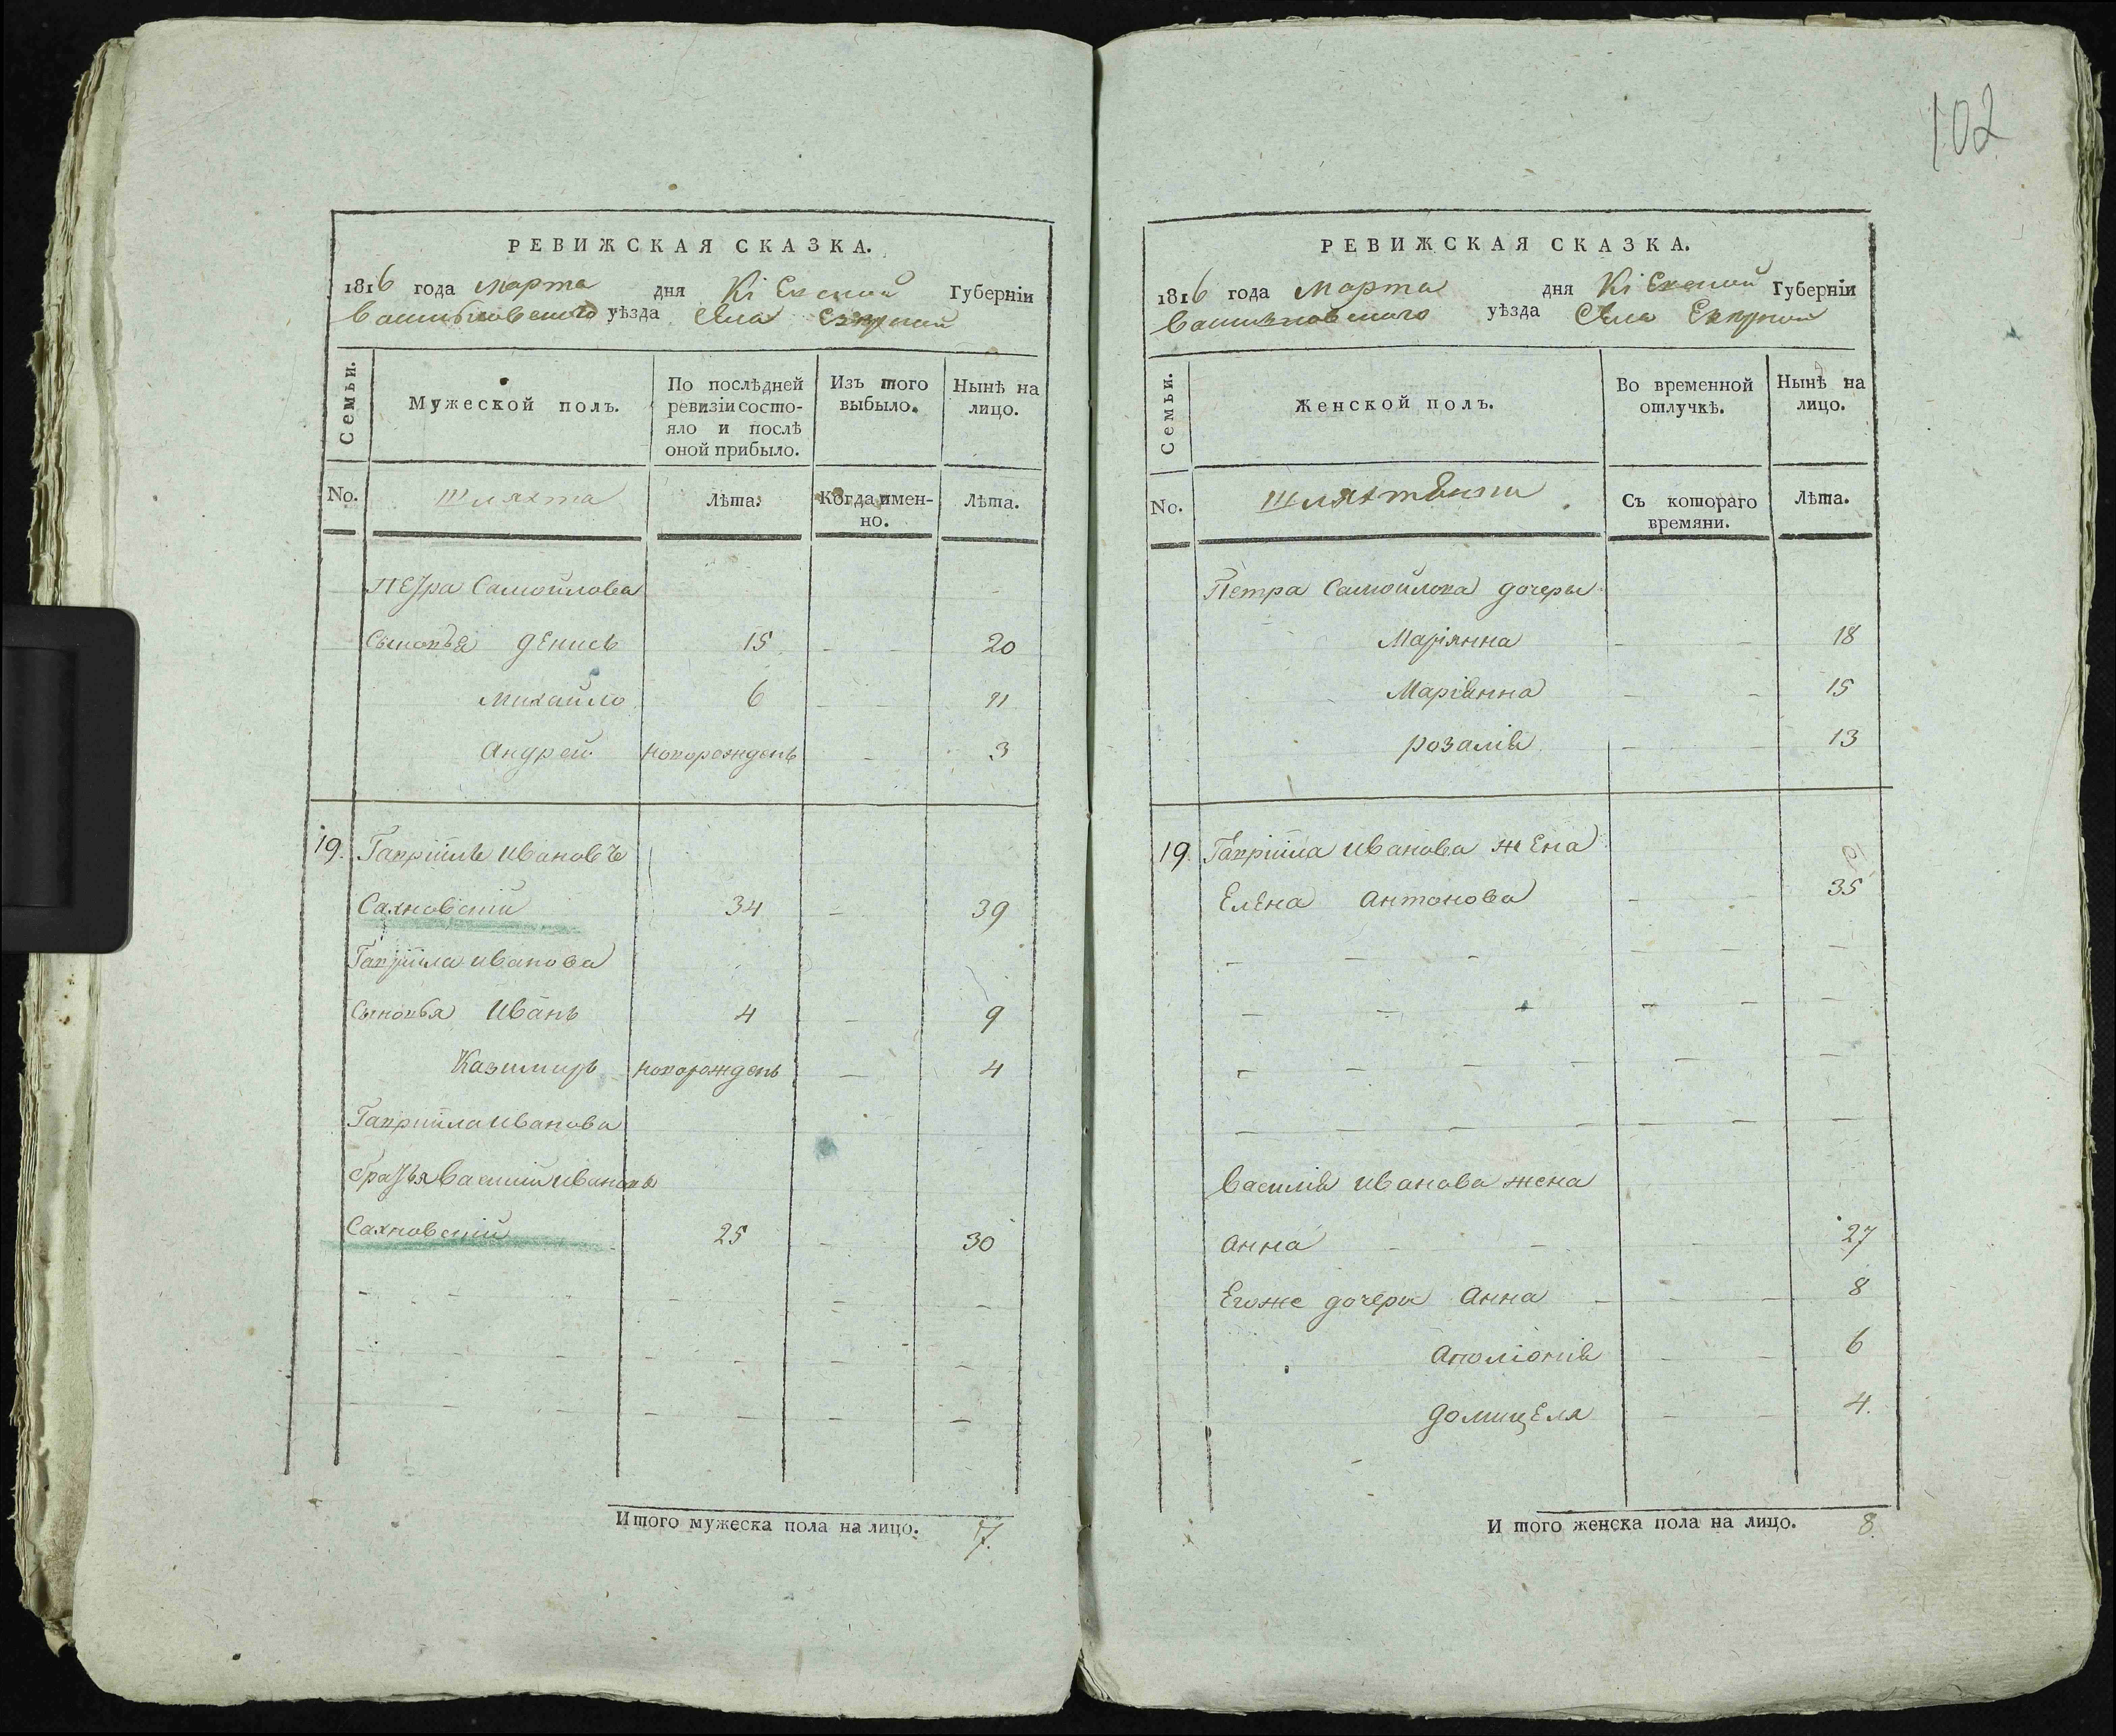 РЕВИЖСКАЯ СКАЗКА.
1816 года Марта дня Кіевской Губерніи
Васильковского уѣзда Села
Семьи.
Мужеской полъ.
По послѣдней ревизіи состояло и послѣ оной прибыло.
Изъ того выбыло.
Нынѣ на лицо.
No.
Шляхта
Лѣта.
Когда имен-
но.
Лѣта.
Петра Самойлова
Сыновья Денисъ 15 - - 20
Михайло 6 - - 11
Андрей новорожденъ - 3
19. Гавріилъ Ивановъ
Сахновскій 34 - 39
Гавріила Иванова
Сыновья Иванъ 4 - 9
Казимиръ новорожденъ - 4
Гавріила Иванова
братья Василій Ивановъ
Сахновскій 25 - 30
Итого мужеска пола на лицо. 7.
102
РЕВИЖСКАЯ СКАЗКА.
1816 года Марта дня Кіевской Губерніи
Васильковского уѣзда Села
Семьи.
Женской полъ.
Во временной отлучкѣ.
Нынѣ на лицо.
No.
Съ котораго
времяни.
Лѣта.
Петра Самойлова дочеры
Маріянна - - 18
Маріянна - - 15
Розалія - - 13
19. Гавріила Иванова жена
Елена Антонова - - 35
Василія Иванова жена
Анна - - 27
Егоже дочери Анна - - 8
Аполіонія - - 6
Домицеля - - 4.
И того женска пола на лицо. 8.